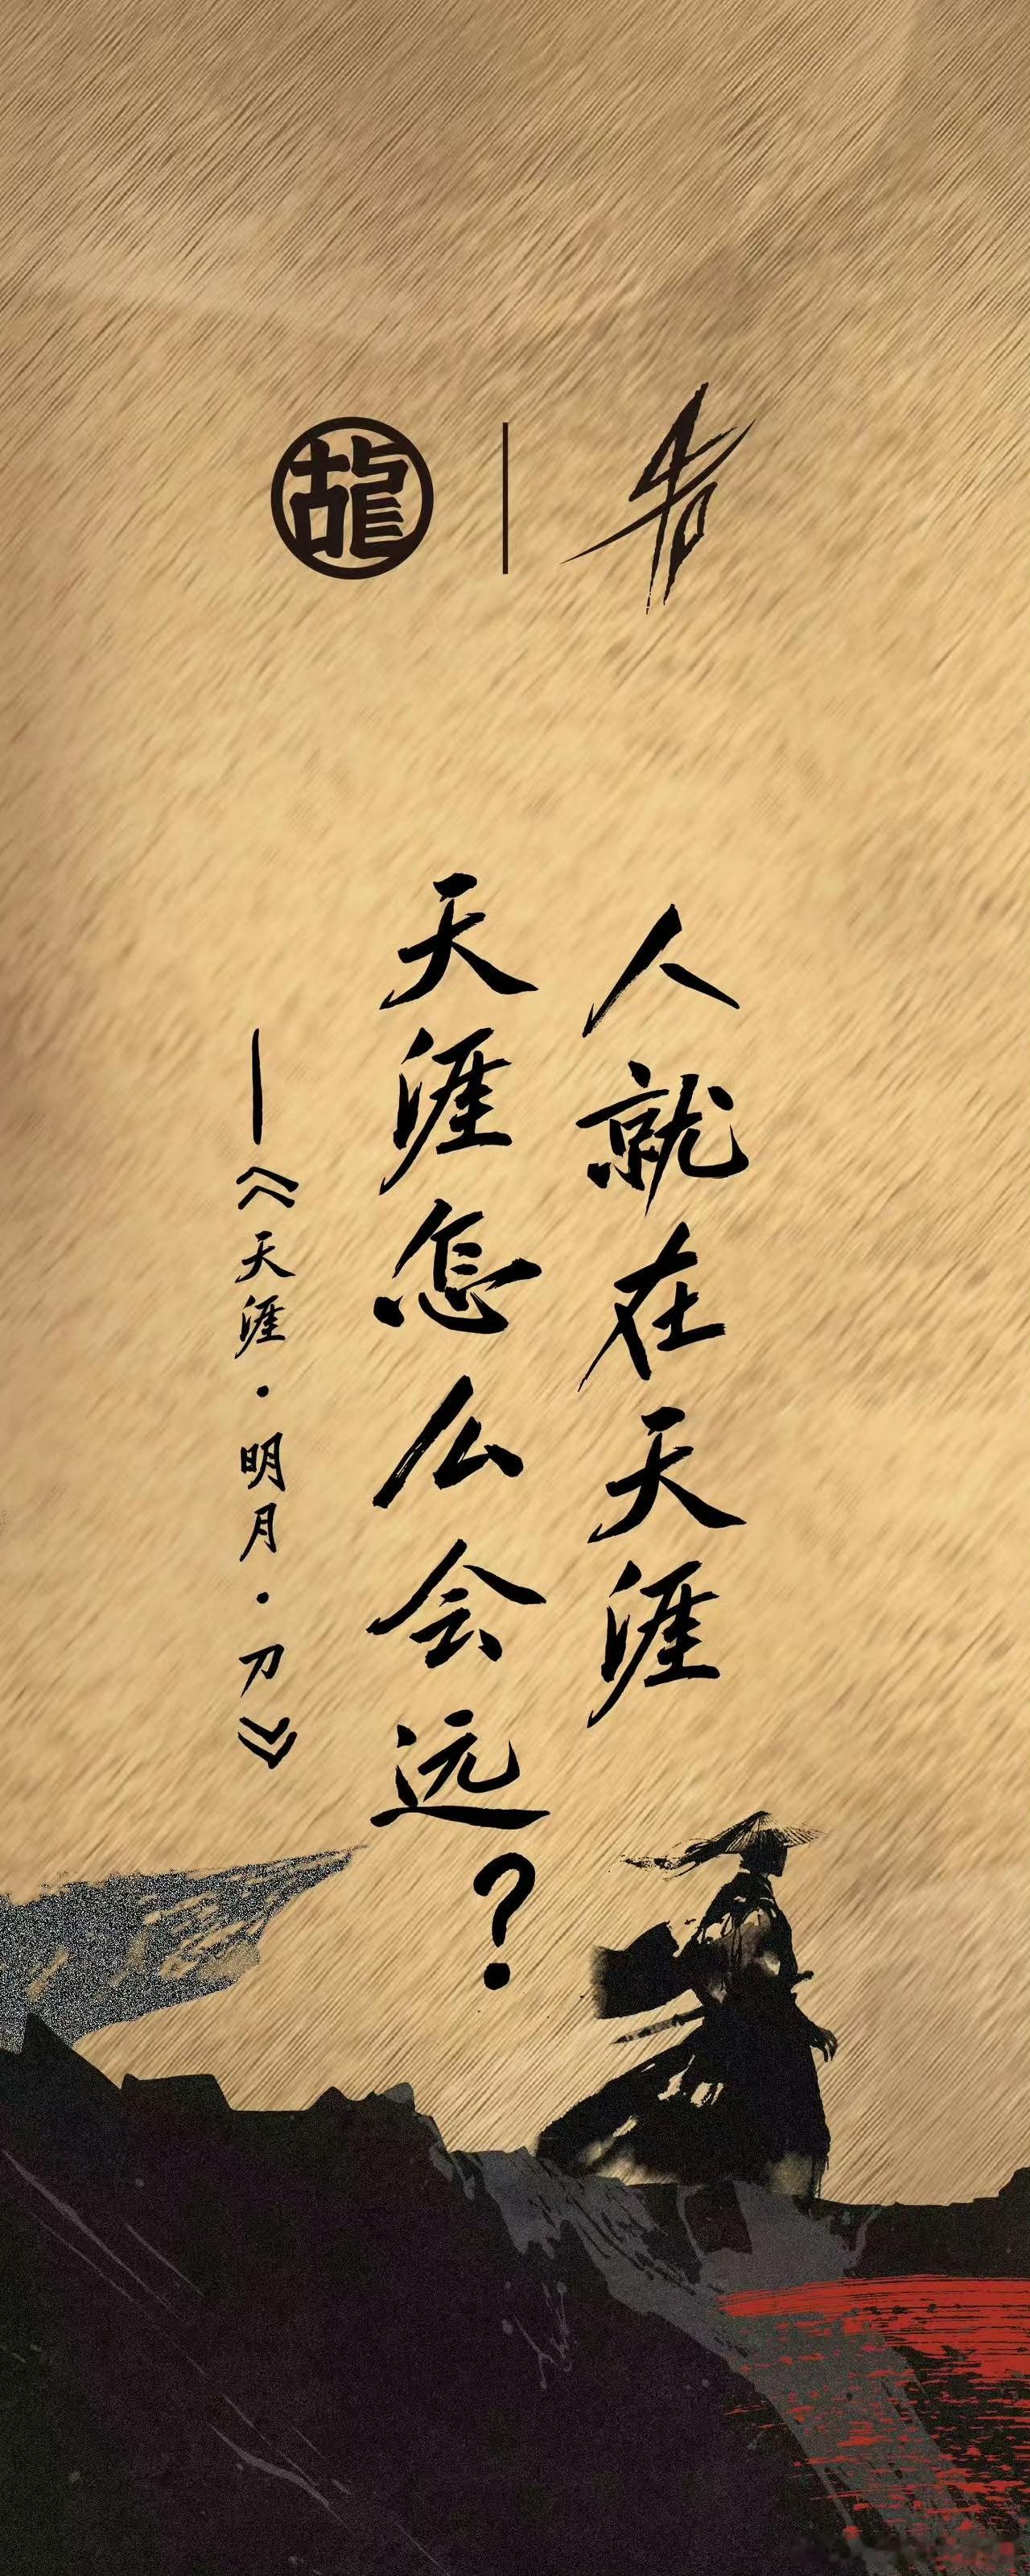 古龍
人就在天涯
天涯怎么会远？
—《天涯·明月·刀》